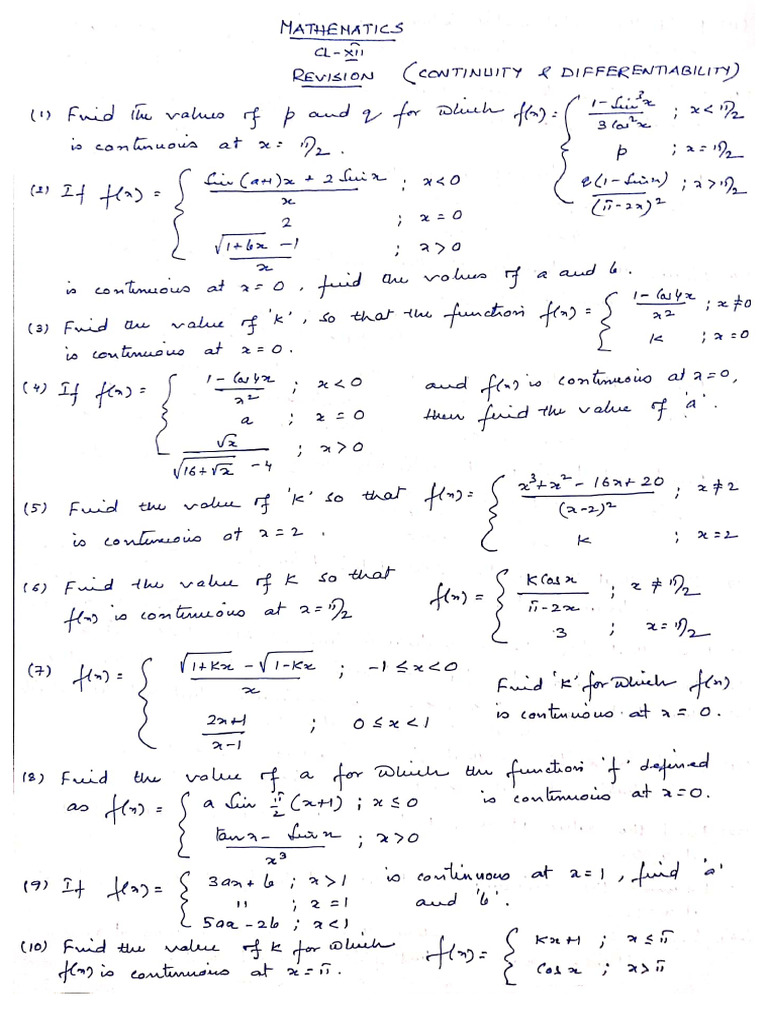 MATHEMATICS
CL-XII
REVISION (CONTINUITY & DIFFERENTIABILITY)
(1) Find the values of p and q for which f(x) = { (1 - sin³x)/(3 cos²x) ; x < π/2
p ; x = π/2
q(1 - sin x)/(π - 2x)² ; x > π/2
is continuous at x = π/2.
(2) If f(x) = { (sin(a+1)x + 2 sin x)/x ; x < 0
2 ; x = 0
(√(1+bx) - 1)/x ; x > 0
is continuous at x = 0, find the values of a and b.
(3) Find the value of 'k', so that the function f(x) = { (1 - cos 4x)/x² ; x ≠ 0
k ; x = 0
is continuous at x = 0.
(4) If f(x) = { (1 - cos 4x)/x² ; x < 0
a ; x = 0
√x/(√(16+√x) - 4) ; x > 0
and f(x) is continuous at x = 0,
then find the value of 'a'.
(5) Find the value of 'k' so that f(x) = { (x³ + x² - 16x + 20)/(x-2)² ; x ≠ 2
k ; x = 2
is continuous at x = 2.
(6) Find the value of K so that
f(x) is continuous at x = π/2
f(x) = { K cos x/(π - 2x) ; x ≠ π/2
3 ; x = π/2
(7) f(x) = { (√(1+Kx) - √(1-Kx))/x ; -1 ≤ x < 0
(2x+1)/(x-1) ; 0 ≤ x < 1
Find 'K' for which f(x)
is continuous at x = 0.
(8) Find the value of a for which the function 'f' defined
as f(x) = { a sin π/2 (x+1) ; x ≤ 0
(tan x - sin x)/x³ ; x > 0
is continuous at x = 0.
(9) If f(x) = { 3ax + b ; x > 1
11 ; x = 1
5ax - 2b ; x < 1
is continuous at x = 1, find 'a'
and 'b'.
(10) Find the value of k for which
f(x) is continuous at x = π.
f(x) = { Kx+1 ; x ≤ π
cos x ; x > π